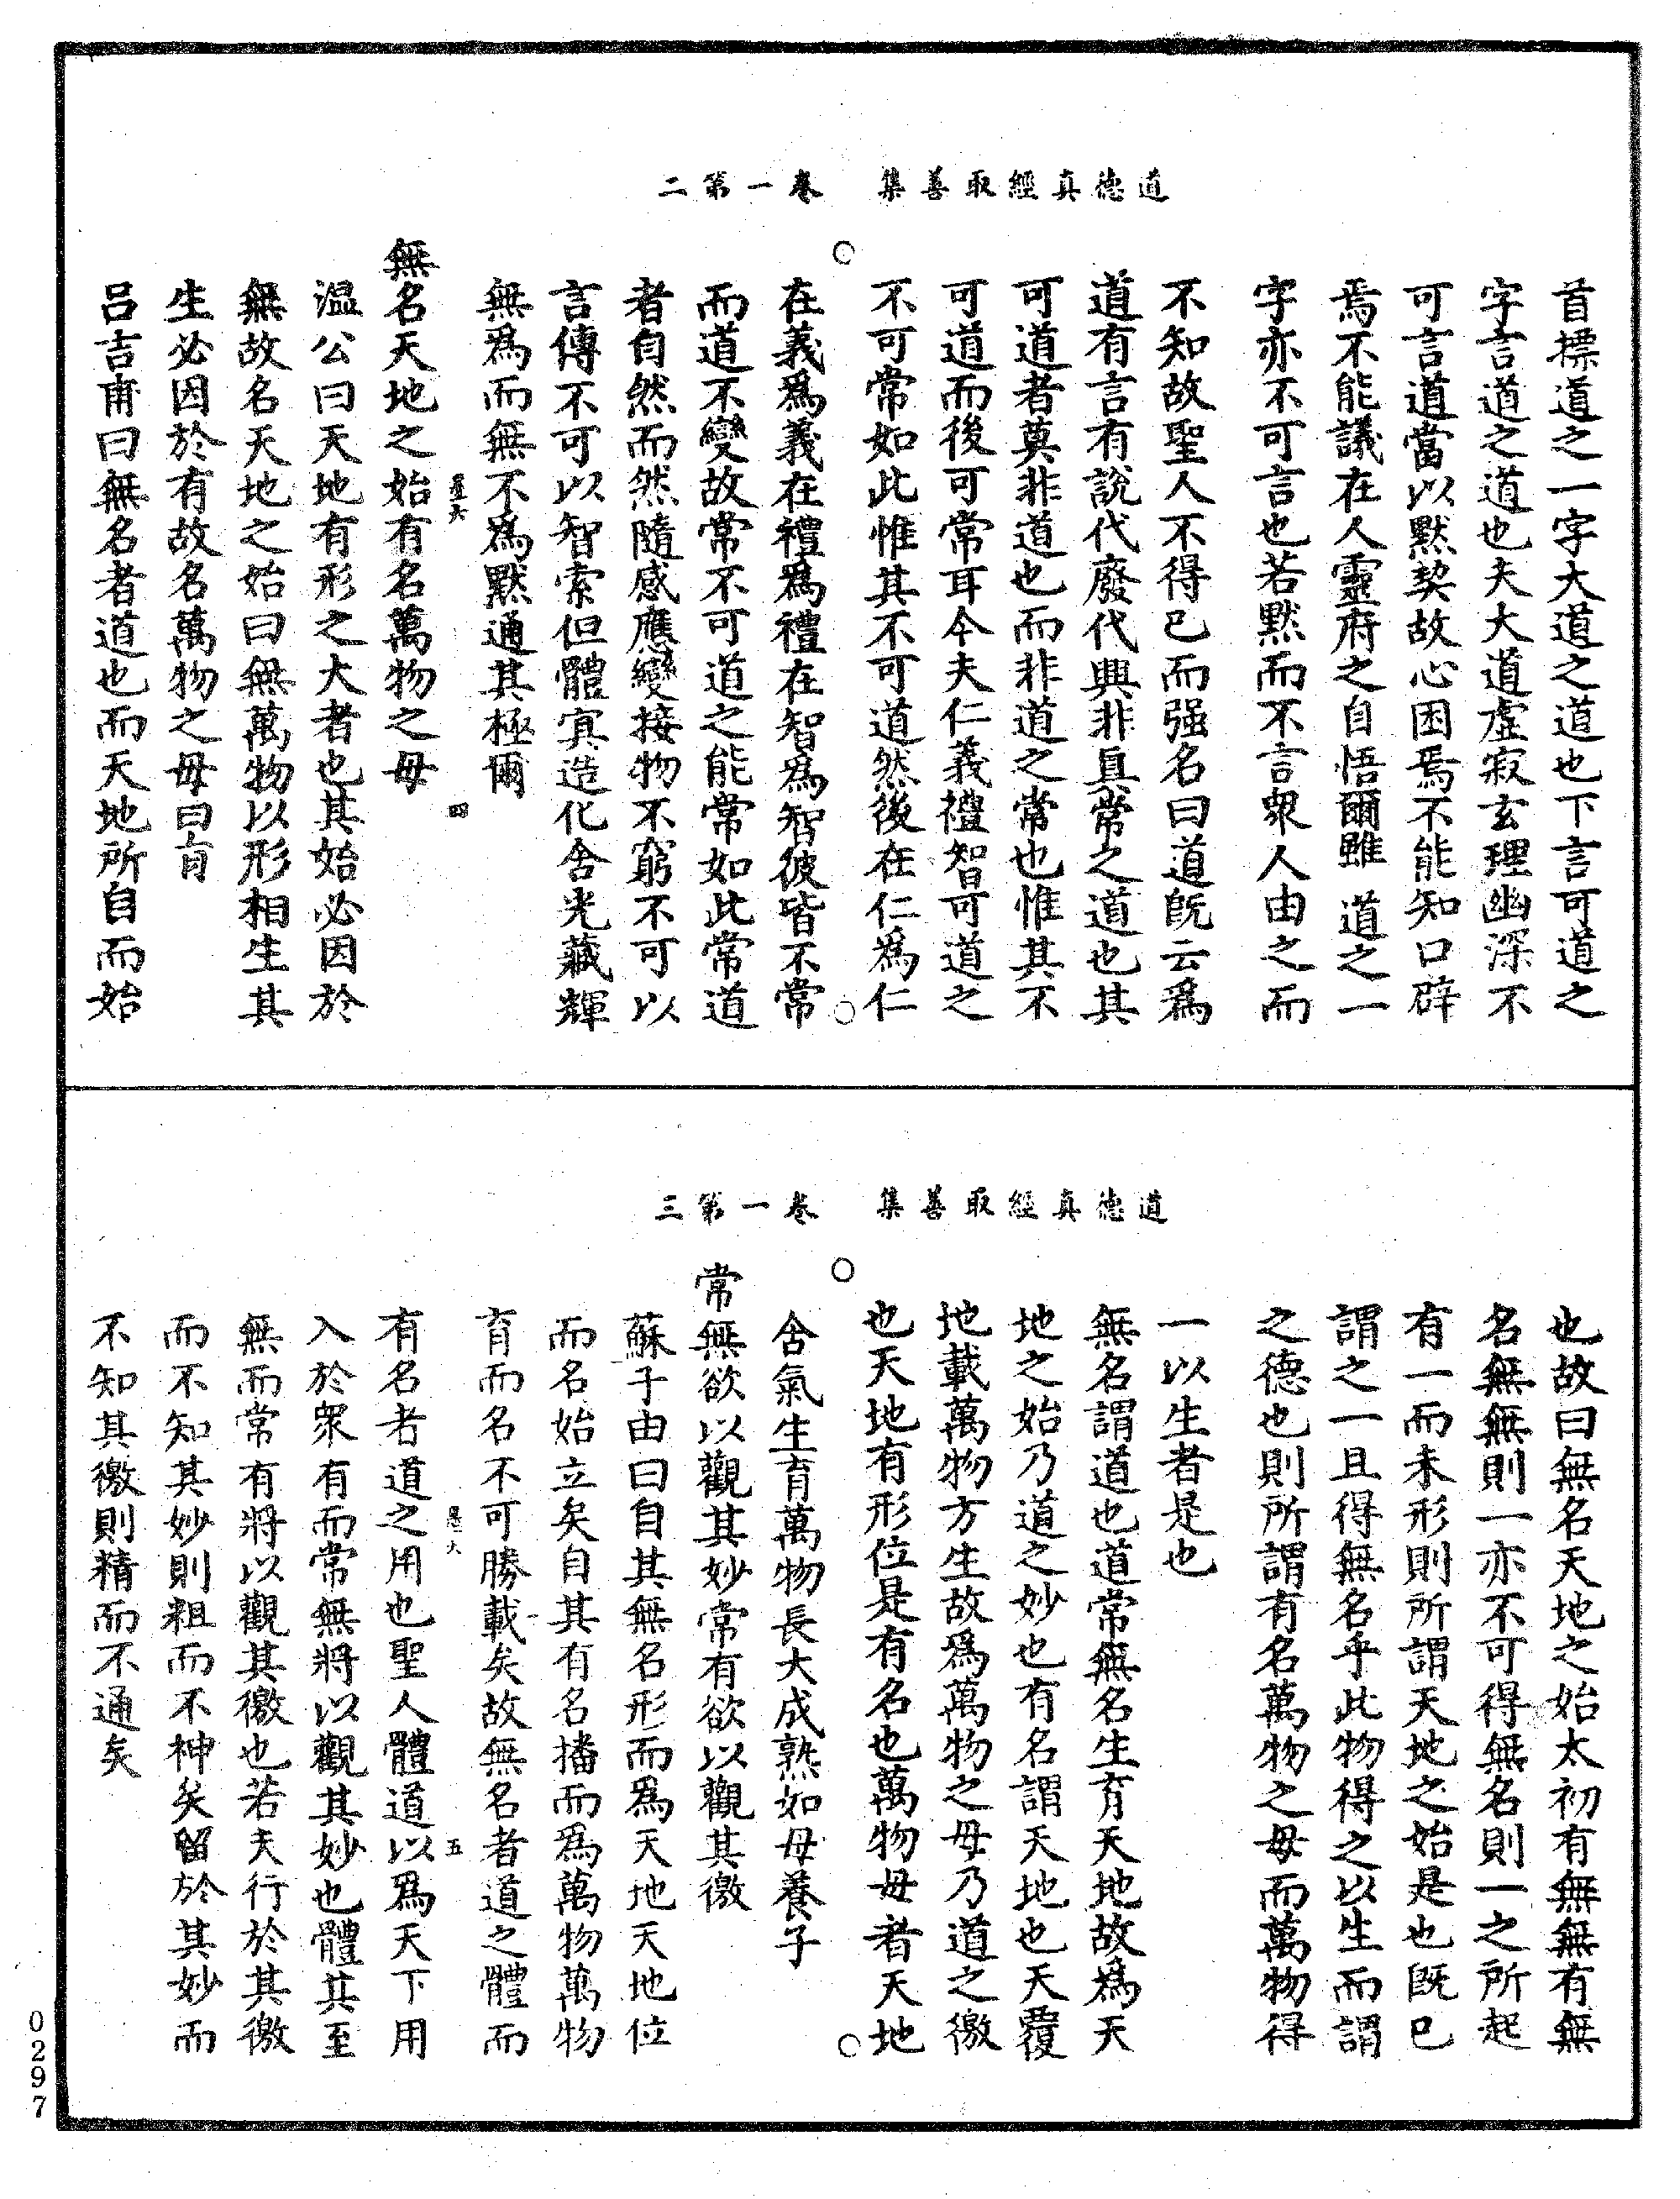 道德真經取善集　卷一第二
首摽道之一字大道之道也下言可道之
字言道之道也夫大道虚寂玄理幽深不
可言道當以默契故心困焉不能知口辟
焉不能議在人靈府之自悟爾雖 道之一
字亦不可言也若默而不言衆人由之而
不知故聖人不得已而强名曰道既云爲
道有言有說代廢代興非真常之道也其
可道者莫非道也而非道之常也惟其不
可道而後可常耳今夫仁義禮智可道之
不可常如此惟其不可道然後在仁為仁
在義爲義在禮爲禮在智爲智彼皆不常
而道不變故常不可道之能常如此常道
者自然而然隨感應變接物不窮不可以
言傳不可以智索但體㝠造化含光藏輝
無爲而無不爲默通其極爾
四
無名天地之始有名萬物之母
温公曰天地有形之大者也其始必因於
無故名天地之始曰無萬物以形相生其
生必因於有故名萬物之母曰有
吕吉甫曰無名者道也而天地所自而始
道德真經取善集　卷一第三
也故曰無名天地之始太初有無無有無
名無無則一亦不可得無名則一之所起
有一而未形則所謂天地之始是也既已
謂之一且得無名乎此物得之以生而謂
之德也則所謂有名萬物之母而萬物得
一以生者是也
無名謂道也道常無名生育天地故為天
地之始乃道之妙也有名謂天地也天覆
地載萬物方生故爲萬物之母乃道之徼
也天地有形位是有名也萬物母者天地
含氣生育萬物長大成熟如母養子
常無欲以觀其妙常有欲以觀其徼
蘇子由曰自其無名形而爲天地天地位
而名始立矣自其有名播而爲萬物萬物
育而名不可勝載矣故無名者道之體而
五
有名者道之用也聖人體道以爲天下用
入於衆有而常無將以觀其妙也體其至
無而常有將以觀其徼也若夫行於其徼
而不知其妙則粗而不神矣留於其妙而
不知其徼則精而不通矣
0297